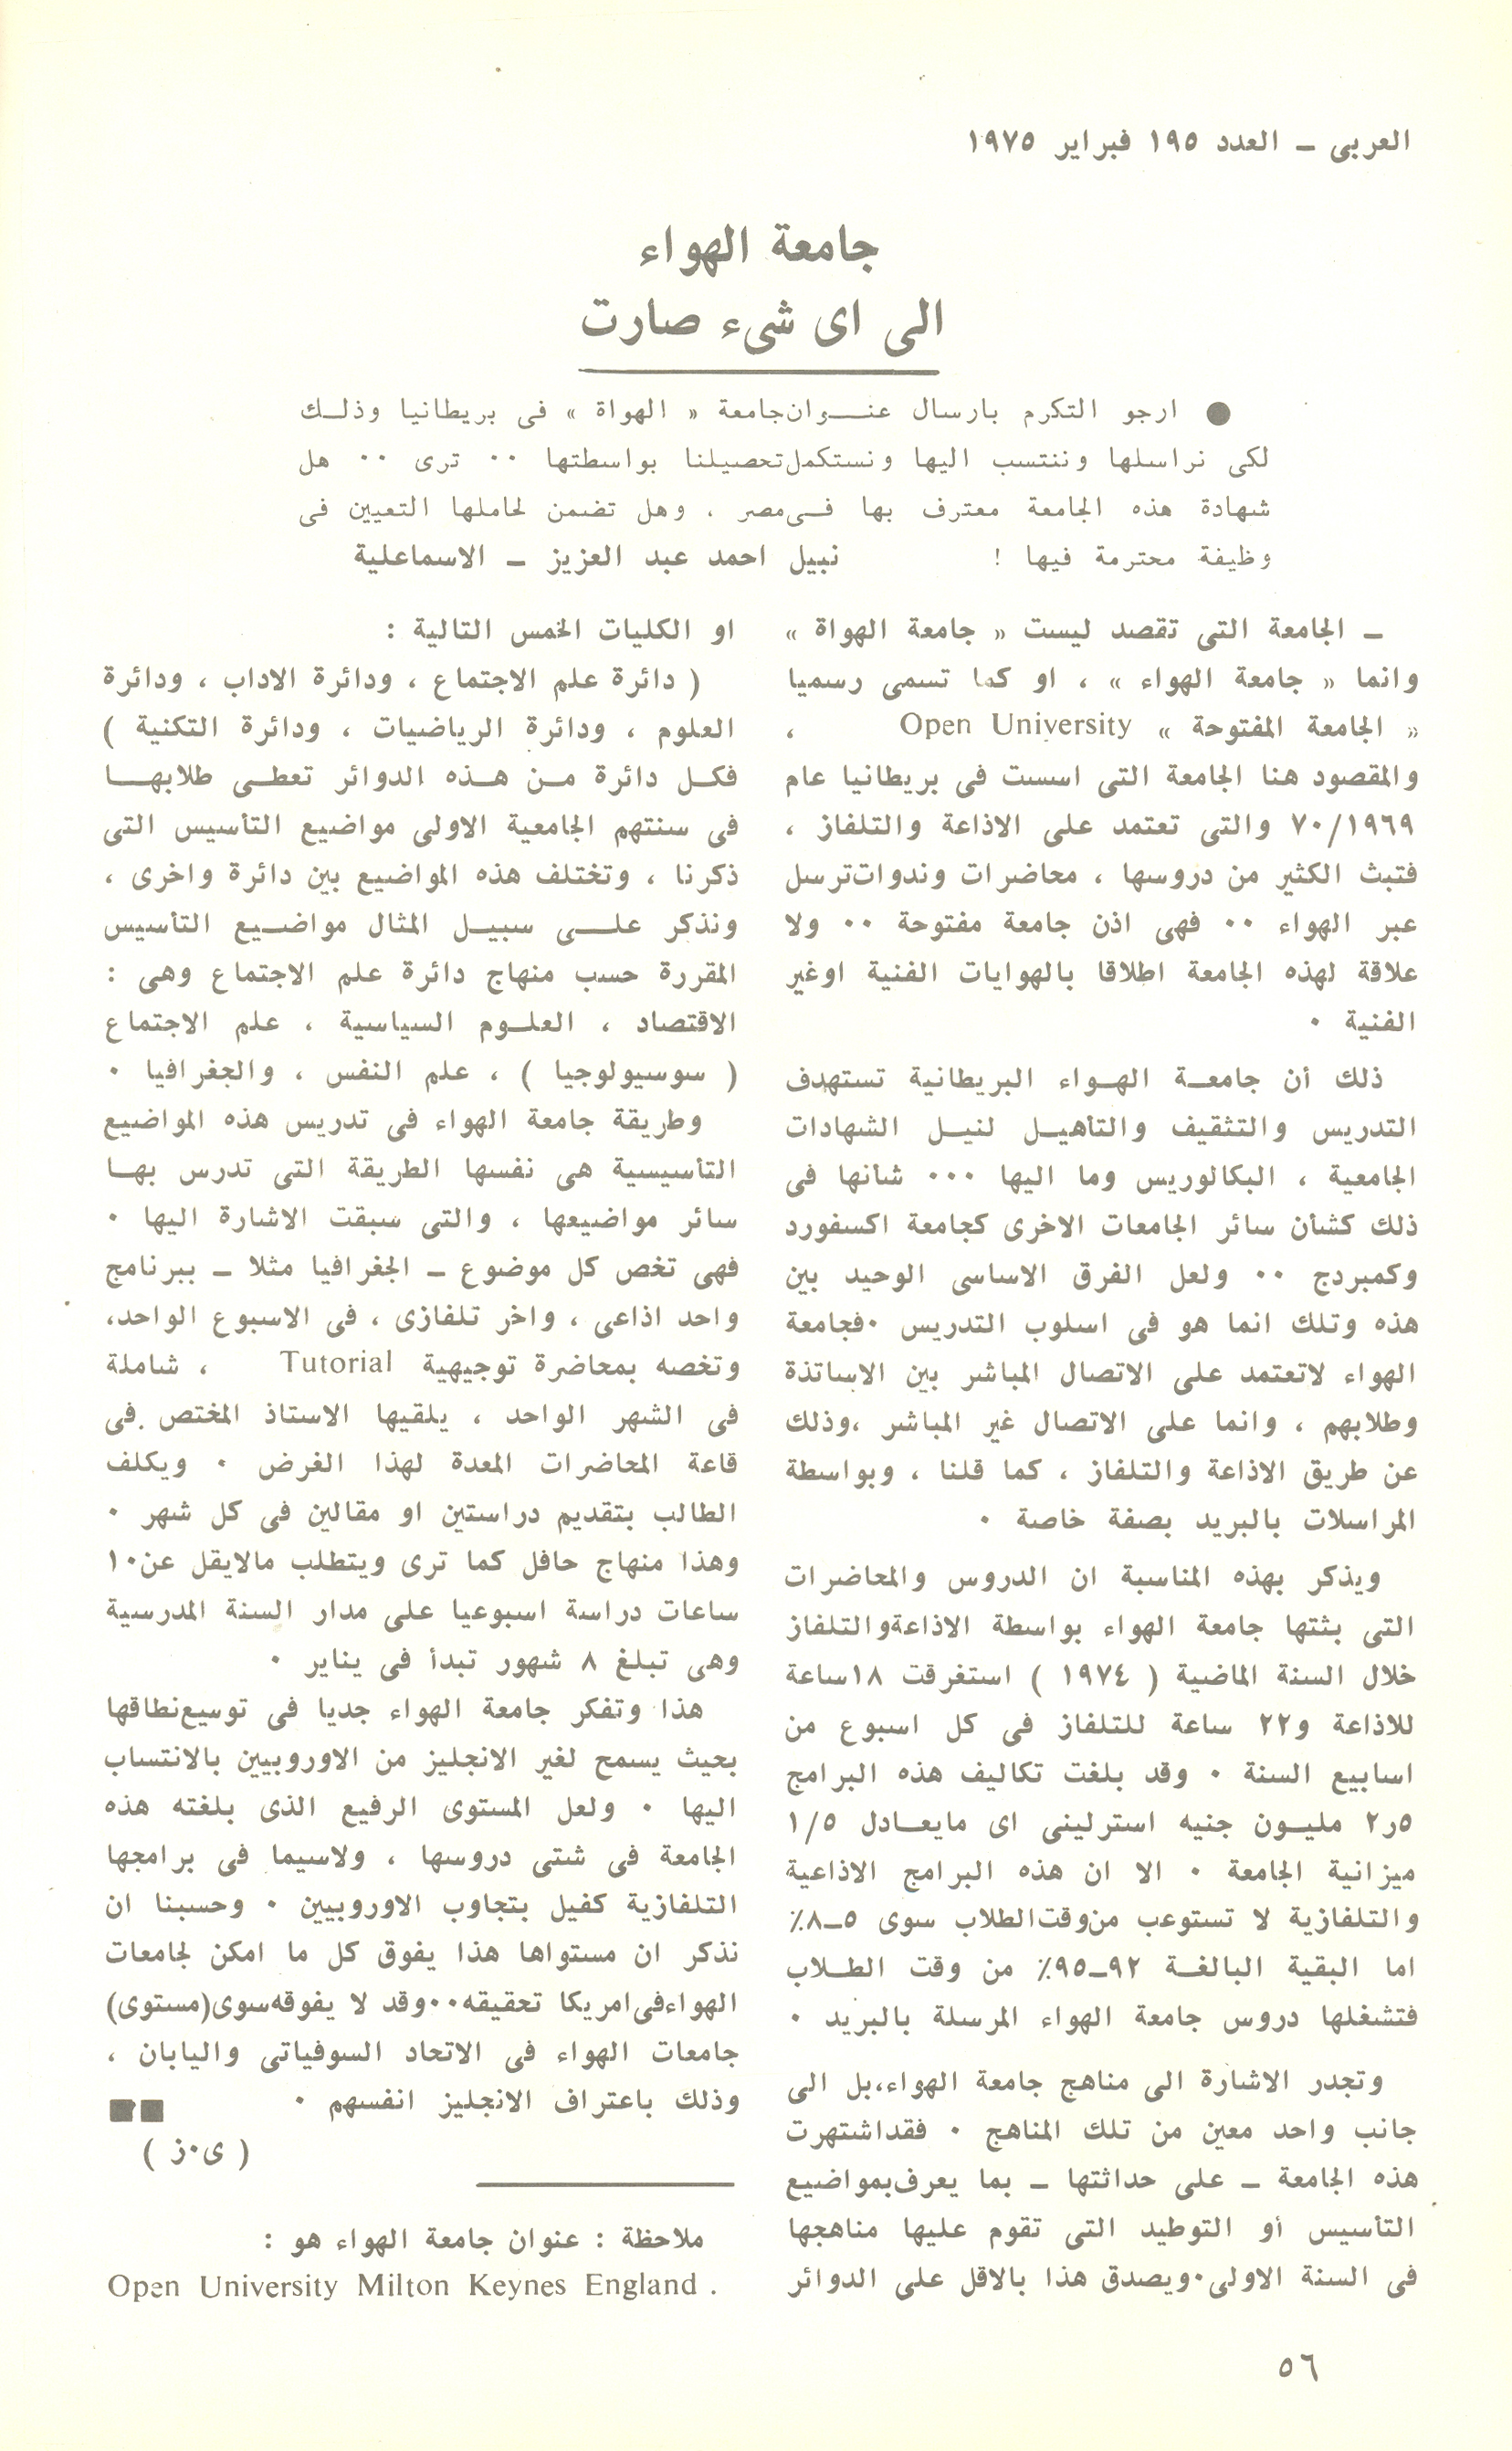 العربى – العدد ١٩٥ فبراير ١٩٧٥
جامعة الهواء
الى اى شىء صارت
● ارجو التكرم بارسال عنـوان جامعة « الهواة » فى بريطانيا وذلـك
لكى نراسلها وننتسب اليها ونستكمل تحصيلنا بواسطتها ٠٠ ترى ٠٠ هل
شهادة هذه الجامعة معترف بها فـى مصر ، وهل تضمن لحاملها التعيين فى
وظيفة محترمة فيها ! نبيل احمد عبد العزيز – الاسماعلية
– الجامعة التى تقصد ليست « جامعة الهواة »
وانما « جامعة الهواء » ، او كما تسمى رسميا
« الجامعة المفتوحة » Open University ،
والمقصود هنا الجامعة التى اسست فى بريطانيا عام
٧٠/١٩٦٩ والتى تعتمد على الاذاعة والتلفاز ،
فتبث الكثير من دروسها ، محاضرات وندوات ترسل
عبر الهواء ٠٠ فهى اذن جامعة مفتوحة ٠٠ ولا
علاقة لهذه الجامعة اطلاقا بالهوايات الفنية اوغير
الفنية ٠
ذلك أن جامعـة الهـواء البريطانية تستهدف
التدريس والتثقيف والتأهيـل لنيـل الشهادات
الجامعية ، البكالوريس وما اليها ٠٠٠ شأنها فى
ذلك كشأن سائر الجامعات الاخرى كجامعة اكسفورد
وكمبردج ٠٠ ولعل الفرق الاساسى الوحيد بين
هذه وتلك انما هو فى اسلوب التدريس ٠فجامعة
الهواء لاتعتمد على الاتصال المباشر بين الاساتذة
وطلابهم ، وانما على الاتصال غير المباشر ،وذلك
عن طريق الاذاعة والتلفاز ، كما قلنا ، وبواسطة
المراسلات بالبريد بصفة خاصة ٠
ويذكر بهذه المناسبة ان الدروس والمحاضرات
التى بثتها جامعة الهواء بواسطة الاذاعةوالتلفاز
خلال السنة الماضية ( ١٩٧٤ ) استغرقت ١٨ساعة
للاذاعة و٢٢ ساعة للتلفاز فى كل اسبوع من
اسابيع السنة ٠ وقد بلغت تكاليف هذه البرامج
٢٫٥ مليـون جنيه استرلينى اى مايعـادل ١/٥
ميزانية الجامعة ٠ الا ان هذه البرامج الاذاعية
والتلفازية لا تستوعب من وقت الطلاب سوى ٥–٨٪
اما البقية البالغـة ٩٢–٩٥٪ من وقت الطـلاب
فتشغلها دروس جامعة الهواء المرسلة بالبريد ٠
وتجدر الاشارة الى مناهج جامعة الهواء،بل الى
جانب واحد معين من تلك المناهج ٠ فقداشتهرت
هذه الجامعة – على حداثتها – بما يعرف بمواضيع
التأسيس أو التوطيد التى تقوم عليها مناهجها
فى السنة الاولى٠ويصدق هذا بالاقل على الدوائر
او الكليات الخمس التالية :
( دائرة علم الاجتماع ، ودائرة الاداب ، ودائرة
العلوم ، ودائرة الرياضيات ، ودائرة التكنية )
فكـل دائرة مـن هـذه الدوائر تعطـى طلابهـا
فى سنتهم الجامعية الاولى مواضيع التأسيس التى
ذكرنا ، وتختلف هذه المواضيع بين دائرة واخرى ،
ونذكر علـى سبيـل المثال مواضـيع التأسيس
المقررة حسب منهاج دائرة علم الاجتماع وهى :
الاقتصاد ، العلـوم السياسية ، علم الاجتماع
( سوسيولوجيا ) ، علم النفس ، والجغرافيا ٠
وطريقة جامعة الهواء فى تدريس هذه المواضيع
التأسيسية هى نفسها الطريقة التى تدرس بهـا
سائر مواضيعها ، والتى سبقت الاشارة اليها ٠
فهى تخص كل موضوع – الجغرافيا مثلا – ببرنامج
واحد اذاعى ، واخر تلفازى ، فى الاسبوع الواحد،
وتخصه بمحاضرة توجيهية Tutorial ، شاملة
فى الشهر الواحد ، يلقيها الاستاذ المختص فى
قاعة المحاضرات المعدة لهذا الغرض ٠ ويكلف
الطالب بتقديم دراستين او مقالين فى كل شهر ٠
وهذا منهاج حافل كما ترى ويتطلب مالايقل عن١٠
ساعات دراسة اسبوعيا على مدار السنة المدرسية
وهى تبلغ ٨ شهور تبدأ فى يناير ٠
هذا وتفكر جامعة الهواء جديا فى توسيع نطاقها
بحيث يسمح لغير الانجليز من الاوروبيين بالانتساب
اليها ٠ ولعل المستوى الرفيع الذى بلغته هذه
الجامعة فى شتى دروسها ، ولاسيما فى برامجها
التلفازية كفيل بتجاوب الاوروبيين ٠ وحسبنا ان
نذكر ان مستواها هذا يفوق كل ما امكن لجامعات
الهواء فى امريكا تحقيقه٠٠وقد لا يفوقه سوى(مستوى)
جامعات الهواء فى الاتحاد السوفياتى واليابان ،
وذلك باعتراف الانجليز انفسهم ٠ ■■
( ى٠ز )
ملاحظة : عنوان جامعة الهواء هو :
Open University Milton Keynes England .
٥٦